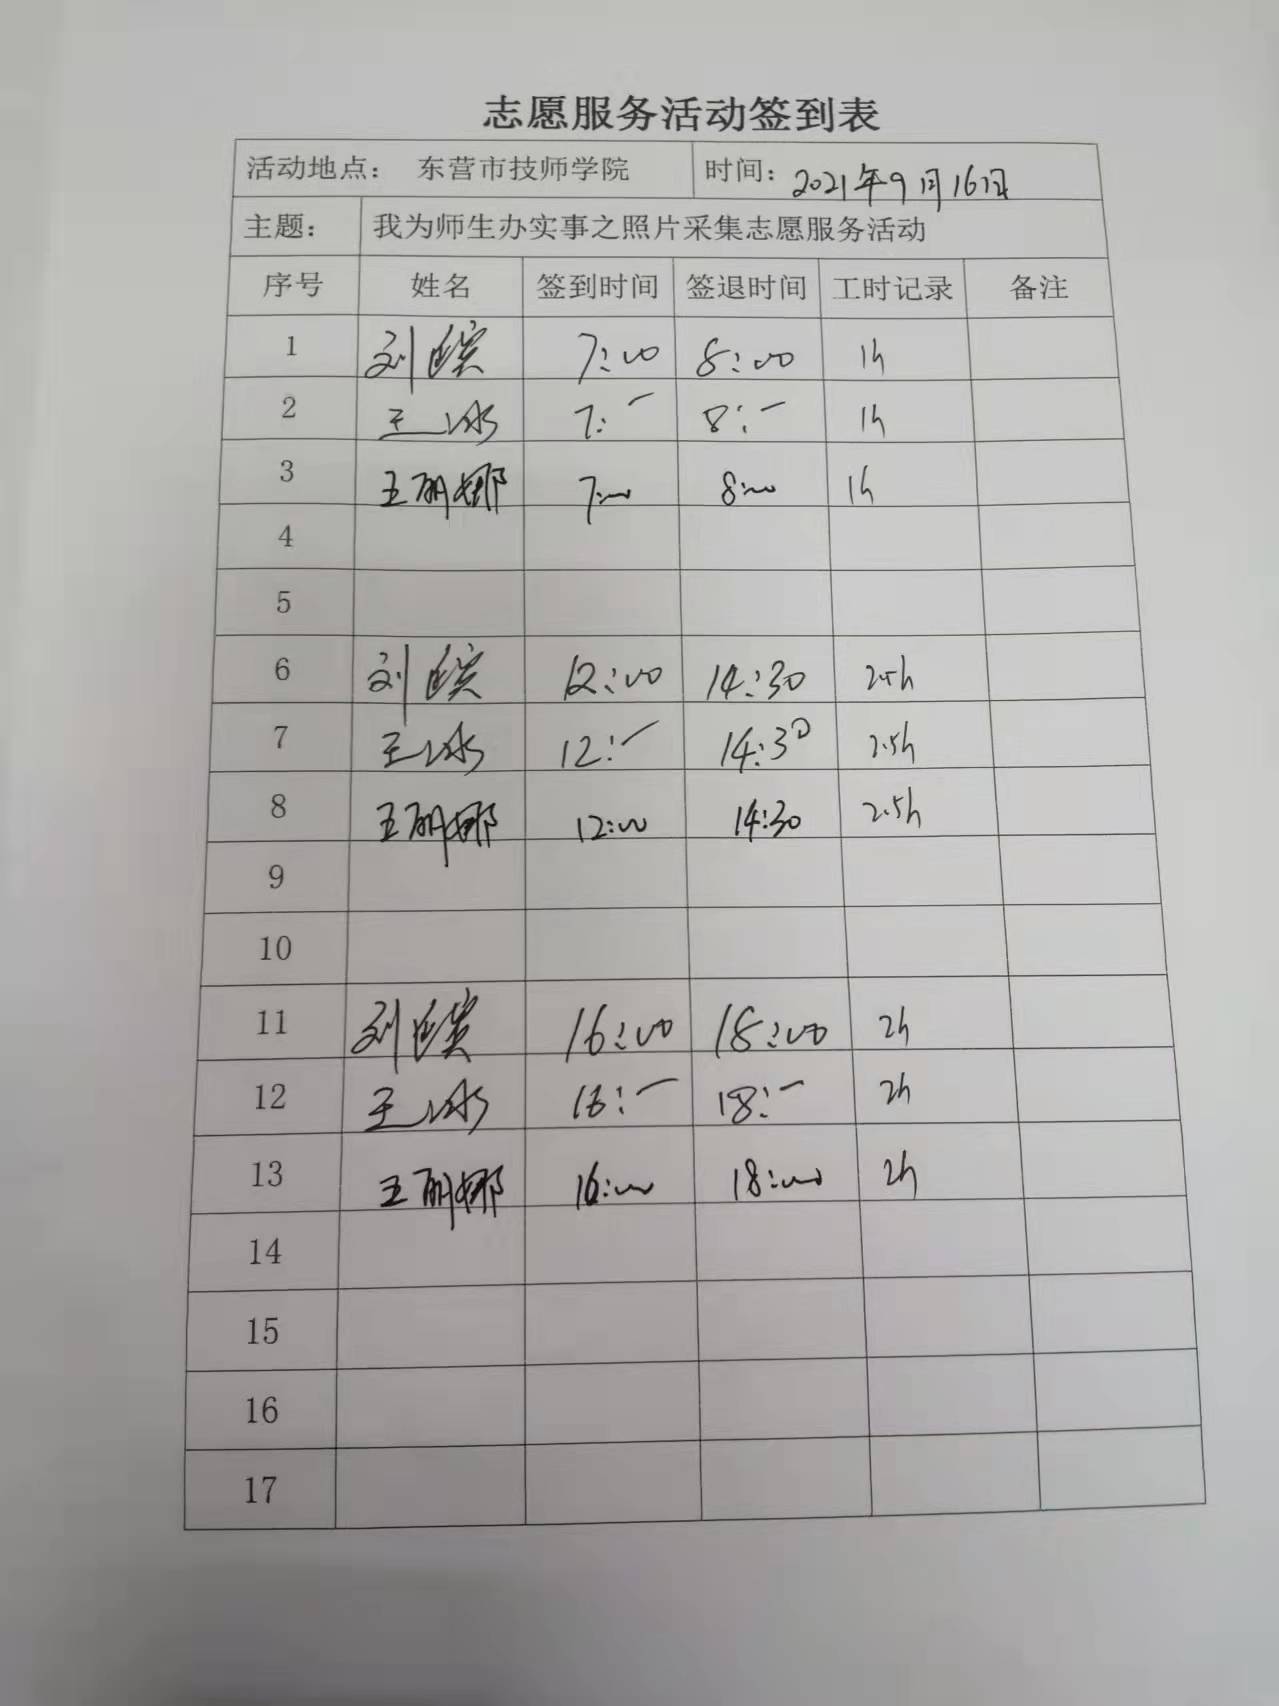 志愿服务活动签到表
活动地点： 东营市技师学院 时间：2021年9月16日
主题： 我为师生办实事之照片采集志愿服务活动
序号 姓名 签到时间 签退时间 工时记录 备注
1 刘 7:00 8:00 1h
2 王冰 7:- 8:- 1h
3 王丽娜 7:00 8:00 1h
4
5
6 刘 12:00 14:30 2.5h
7 王冰 12:- 14:30 2.5h
8 王丽娜 12:00 14:30 2.5h
9
10
11 刘 16:00 18:00 2h
12 王冰 16:- 18:- 2h
13 王丽娜 16:00 18:00 2h
14
15
16
17